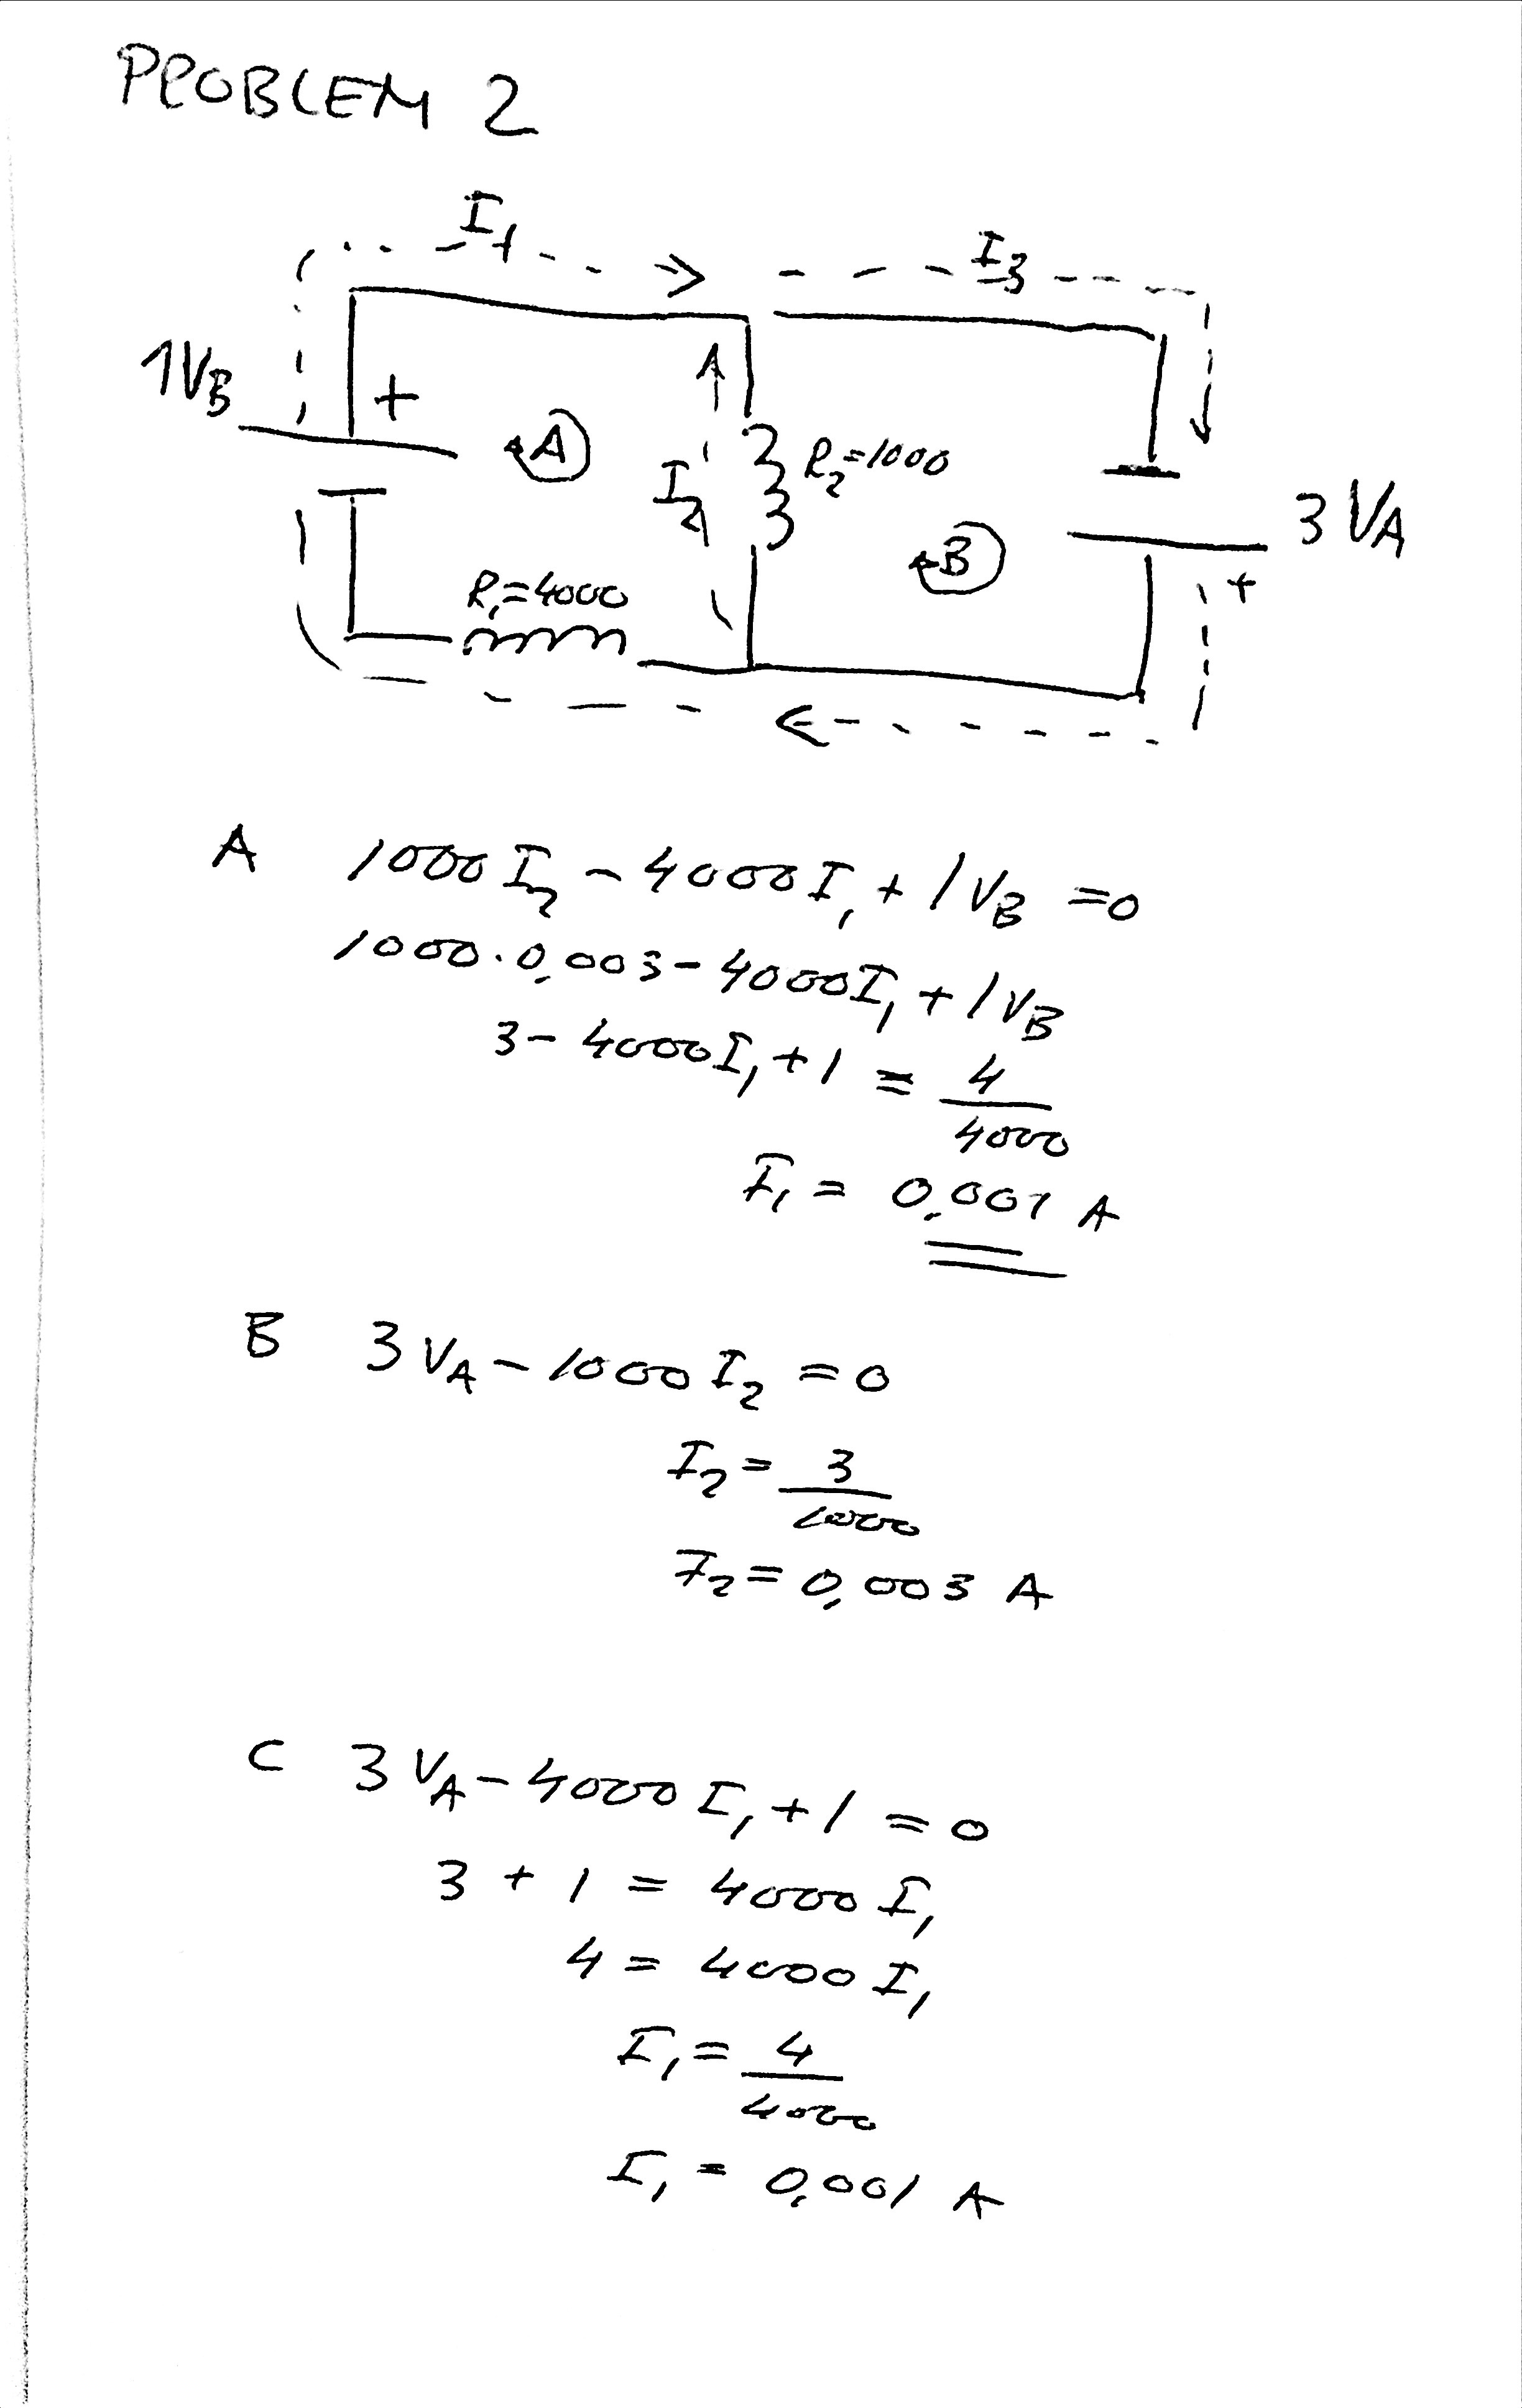 PROBLEM 2
I1
I3
1VB
+
A
I2
R2=1000
B
3 VA
+
R1=4000
A 1000 I2 - 4000 I1 + 1 VB = 0
1000 · 0,003 - 4000 I1 + 1 VB
3 - 4000 I1 + 1 = 4/4000
I1 = 0,001 A
B 3 VA - 1000 I2 = 0
I2 = 3/1000
I2 = 0,003 A
C 3 VA - 4000 I1 + 1 = 0
3 + 1 = 4000 I1
4 = 4000 I1
I1 = 4/4000
I1 = 0,001 A